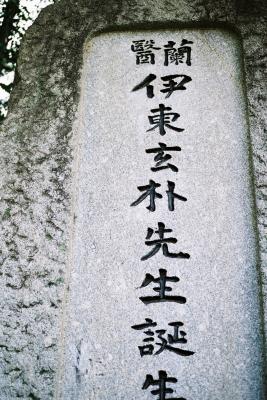 蘭醫
伊東玄朴先生誕生